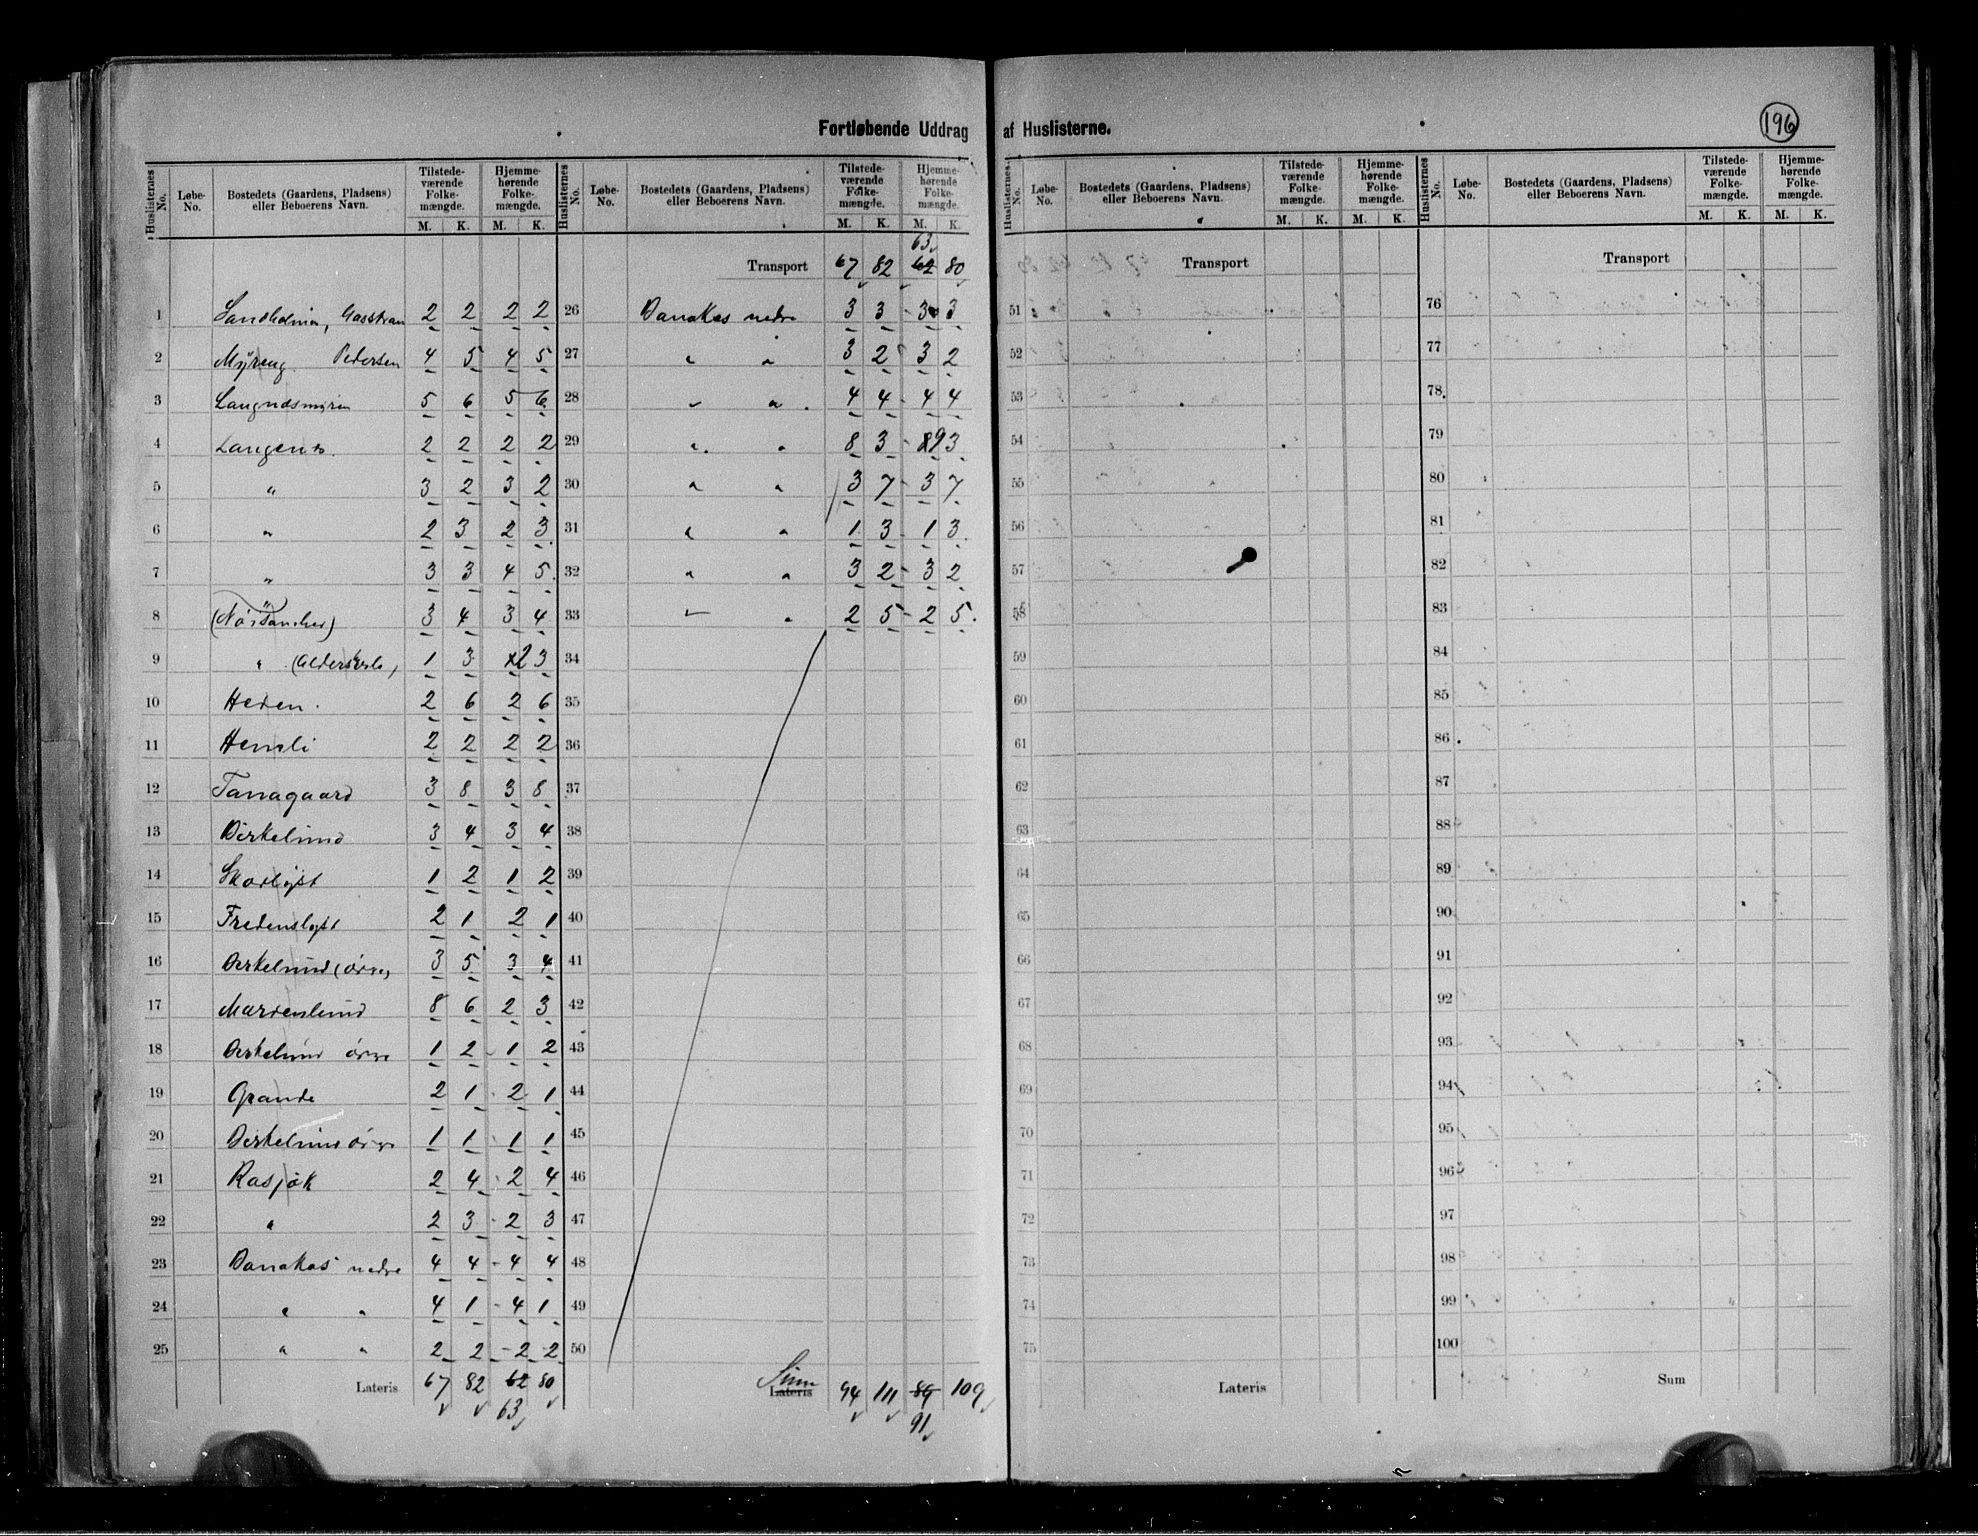 Fortløbende Uddrag af Huslisterne.
196
Huslisternes No. Løbe-No. Bostedets (Gaardens, Pladsens) eller Beboerens Navn. Tilstede-værende Folke-mængde. Hjemme-hørende Folke-mængde.
M. K. M. K.
1 Sandholmen, Gasstrau 2 2 2 2
2 Myreng Pedersen 4 5 4 5
3 Langnæsmyren 5 6 5 6
4 Langenes. 2 2 2 2
5 " 3 2 3 2
6 " 2 3 2 3
7 " 3 3 4 5
8 " 3 4 3 4
9 " 1 3 2 3
10 Heden. 2 6 2 6
11 Hemli 2 2 2 2
12 Tanagaard 3 8 3 8
13 Birkelund 3 4 3 4
14 Skovlyst 1 2 1 2
15 Fredenslyst 2 1 2 1
16 Birkelund (øvre) 3 5 3 4
17 Mardenslund 8 6 2 3
18 Birkelund øvre 1 2 1 2
19 Grande 2 1 2 1
20 Birkelund øvre 1 1 1 1
21 Rasjok 2 4 2 4
22 " 2 3 2 3
23 Bonakas nedre 4 4 4 4
24 " " 4 1 4 1
25 " " 2 2 2 2
Lateris 67 82 62 80
63
Huslisternes No. Løbe-No. Bostedets (Gaardens, Pladsens) eller Beboerens Navn. Tilstede-værende Folke-mængde. Hjemme-hørende Folke-mængde.
M. K. M. K.
63
Transport 67 82 62 80
26 Bonakas nedre 3 3 3 3
27 " " 3 2 3 2
28 " " 4 4 4 4
29 " " 8 3 8 9 3
30 " " 3 7 3 7
31 " " 1 3 1 3
32 " " 3 2 3 2
33 " " 2 5 2 5
34
35
36
37
38
39
40
41
42
43
44
45
46
47
48
49
50
Sum
Lateris 94 111 89 109
91
Huslisternes No. Løbe-No. Bostedets (Gaardens, Pladsens) eller Beboerens Navn. Tilstede-værende Folke-mængde. Hjemme-hørende Folke-mængde.
M. K. M. K.
Transport
51
52
53
54
55
56
57
58
59
60
61
62
63
64
65
66
67
68
69
70
71
72
73
74
75
Lateris
Huslisternes No. Løbe-No. Bostedets (Gaardens, Pladsens) eller Beboerens Navn. Tilstede-værende Folke-mængde. Hjemme-hørende Folke-mængde.
M. K. M. K.
Transport
76
77
78
79
80
81
82
83
84
85
86
87
88
89
90
91
92
93
94
95
96
97
98
99
100
Sum